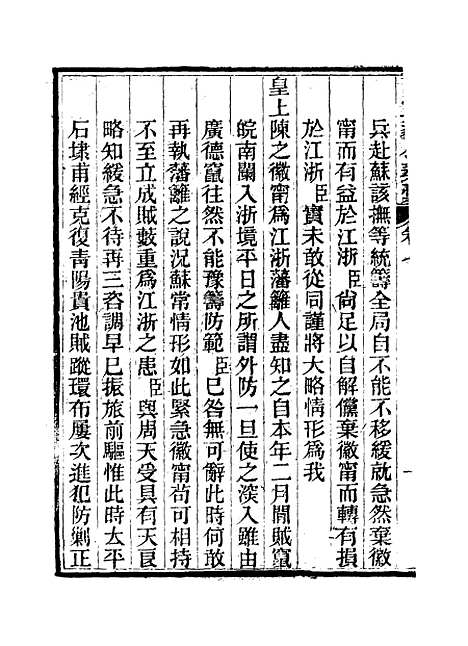 兵赴蘇該撫等統籌全局自不能不移緩就急然棄徽
甯而有益於江浙臣尙足以自解儻棄徽甯而轉有損
於江浙臣實未敢從同謹將大略情形爲我
皇上陳之徽甯爲江浙藩籬人盡知之自本年二月間賊竄
皖南闌入浙境平日之所謂外防一旦使之深入雖由
廣德竄往然不能豫籌防範臣已咎無可辭此時何敢
再執藩離之說況蘇常情形如此緊急徽甯苟可相持
不至立成賊藪重爲江浙之患臣與周天受具有天良
略知緩急不待再三咨調早已振旅前驅惟此時太平
石埭甫經克復靑陽貴池賊蹤環布屢次進犯防剿正